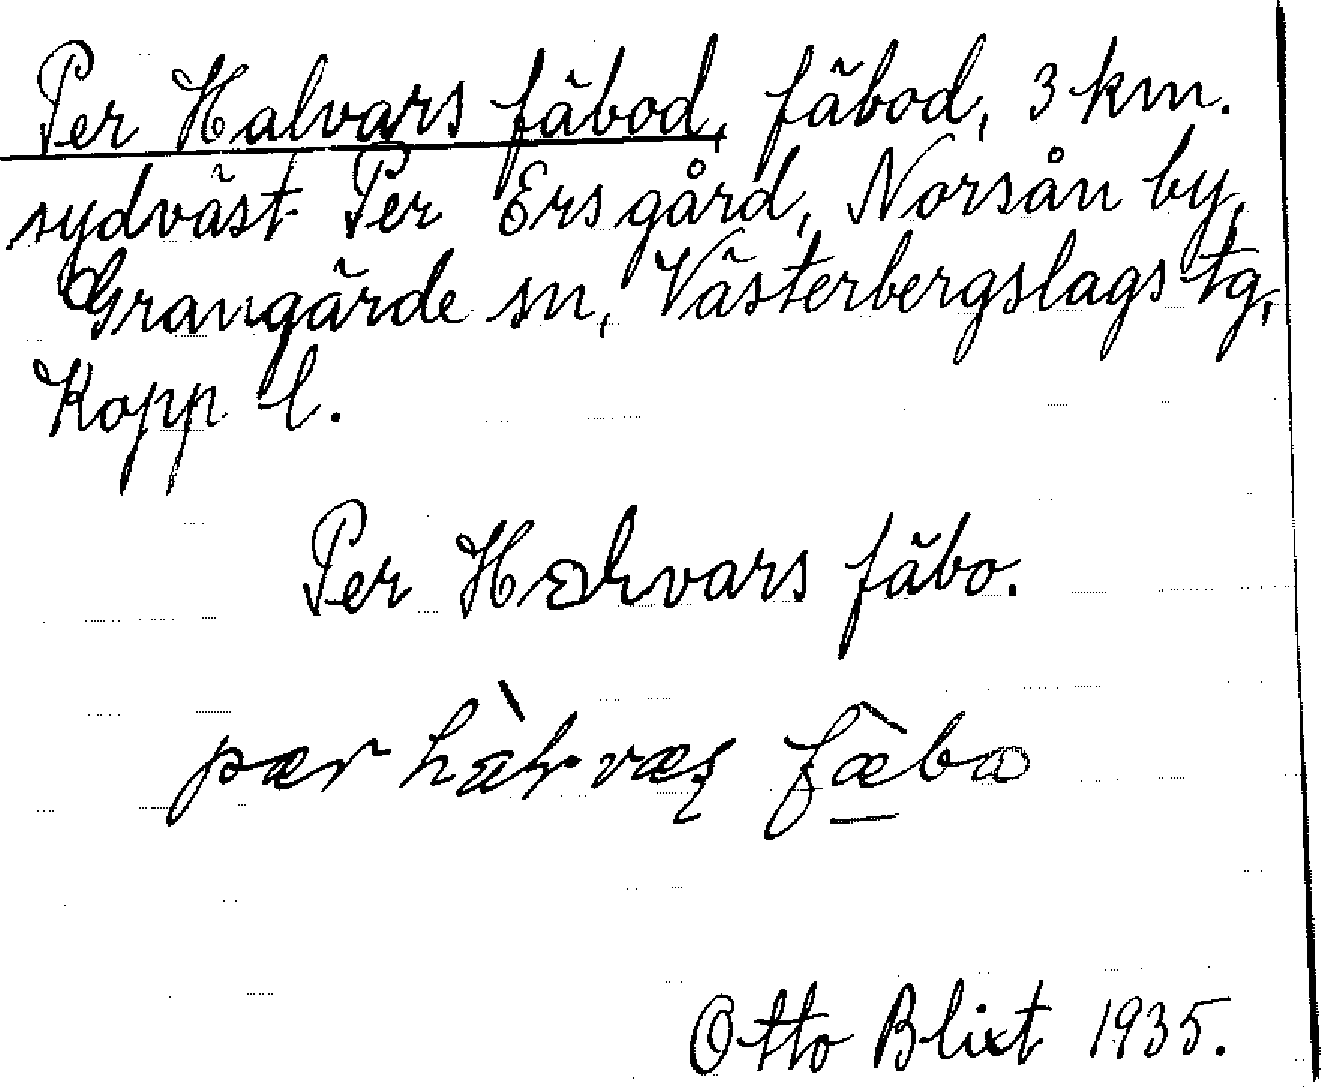 Per Halvars fäbod, fäbod, 3 km.
sydväst Per Ers gård, Norsån by,
Grangärde sn, Västerbergslags tg,
Kopp l.
Per Halvars fäbo.
Otto Blixt 1935.